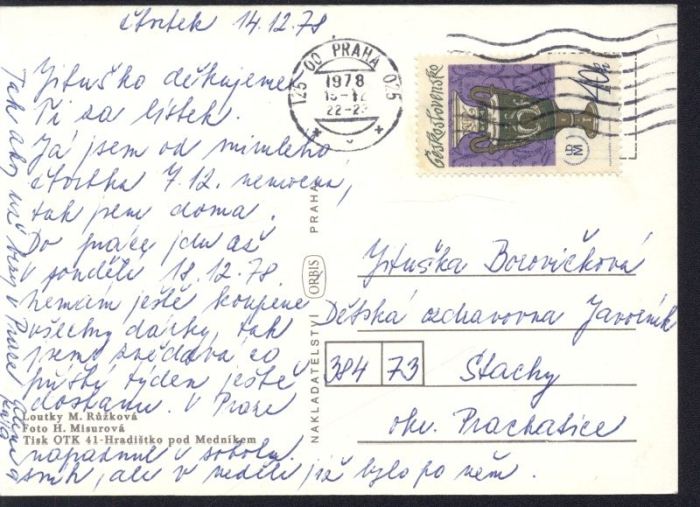 čtvrtek 14.12.78
Jituško děkujeme
Ti za lístek.
Já jsem od minulého
čtvrtka 7.12. nemocna,
tak jsem doma.
Do práce jdu až
v pondělí 18.12.78.
Nemám ještě koupené
všechny dárky, tak
jsem zvědava co
příští týden ještě
dostanu. V Praze
napadnul v sobotu
sníh, ale v neděli již bylo po něm.
Tak aby už byly v Praze
Loutky M. Růžková
Foto H. Misurová
Tisk OTK 41-Hradištko pod Medníkem
NAKLADATELSTVÍ ORBIS PRAHA
125 00 PRAHA 025
1978
22-2
Československo
40h
Jituška Borovičková
Dětská ozdravovna Javorník
384 73 Stachy
okr. Prachatice